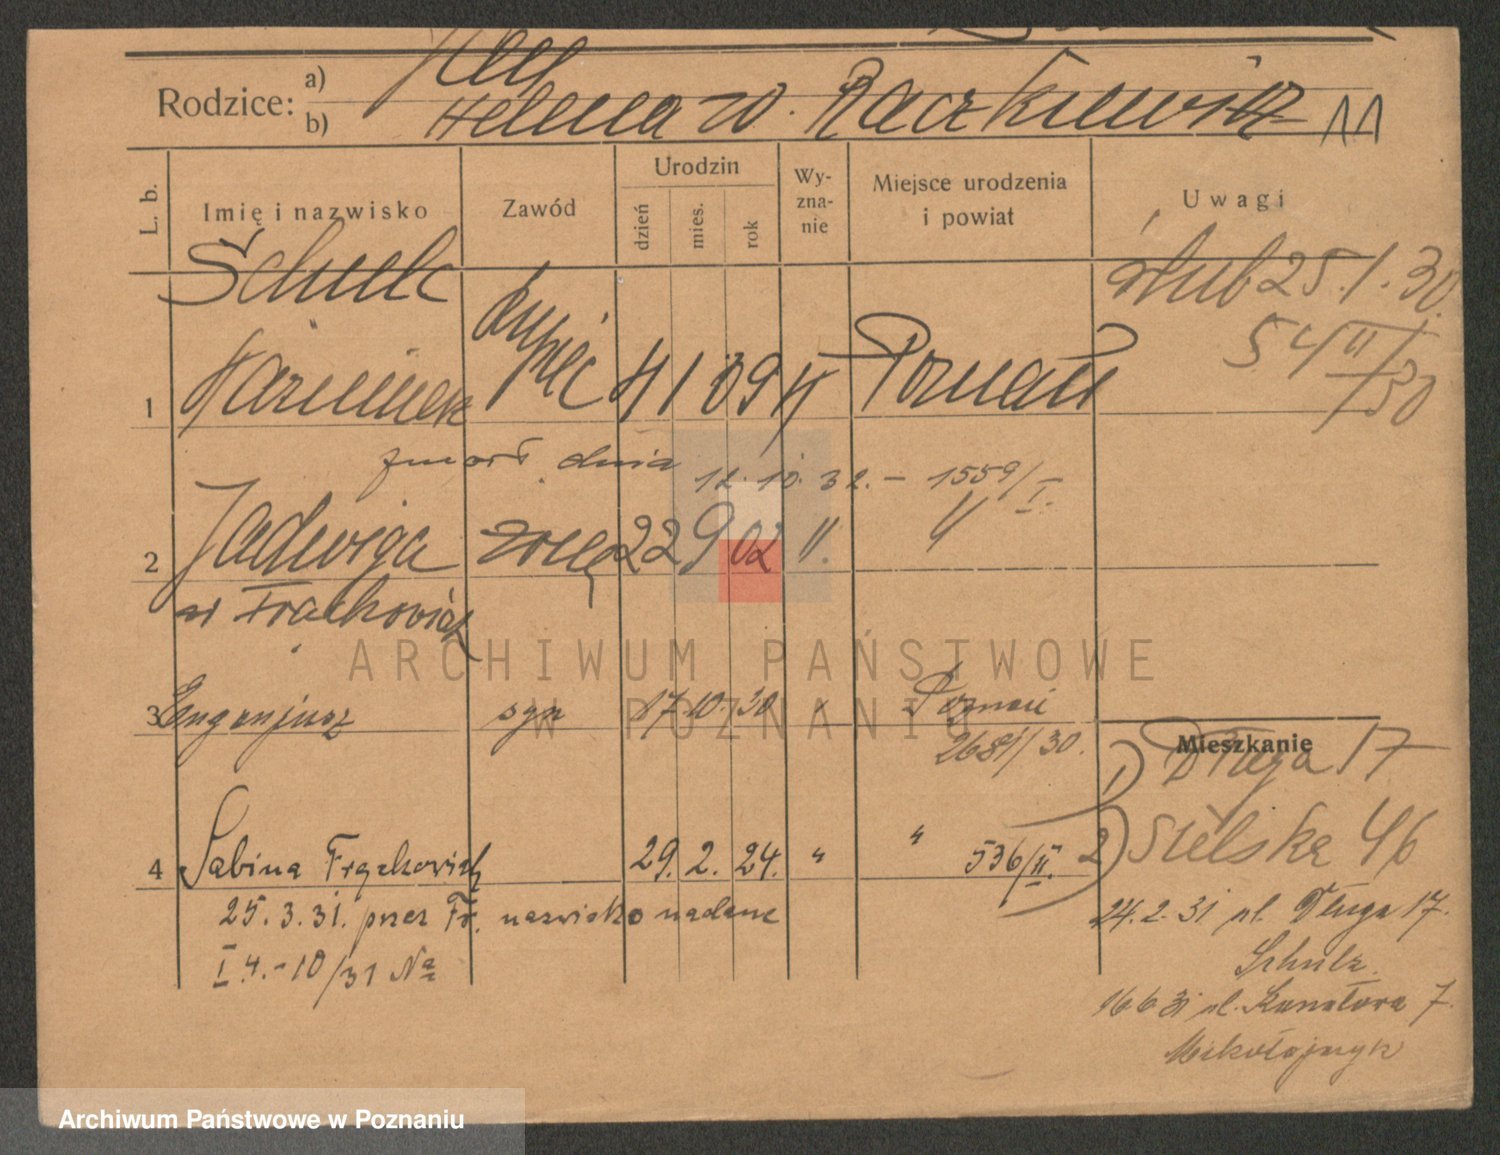 Rodzice:
a)
b) Helena
L. b.
Imię i nazwisko
Zawód
Urodzin
dzień
mies.
rok
Wy-
zna-
nie
Miejsce urodzenia
i powiat
Uwagi
ślub 25.1.30.
54 II/30
1 Kazimierz 4 1 09 Poznań
zmarł dnia 12.10.32. – 1559/I.
2 Jadwiga żona 22 9 02 "
Frąckowiak
3 Eugenjusz syn 17 10 30 " Poznań
2681/30.
Mieszkanie
1) Długa 17
2) Sielska 46
4 Sabina Frąckowiak 29. 2. 24. " " 536/II.
25.3.31. przez Fr. nazwisko nadane
I 4.-10/31 Na
24.2.31 ul. Długa 17.
Schulz
16 6 31 ul. Kanałowa 7.
Mikołajczyk
ARCHIWUM PAŃSTWOWE
W POZNANIU
Archiwum Państwowe w Poznaniu